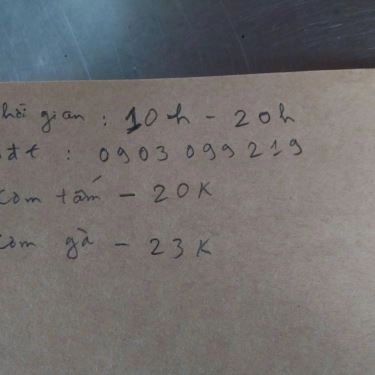 hời gian : 10h - 20h
đt : 0903 099 219
Cơm tấm - 20K
Cơm gà - 23K